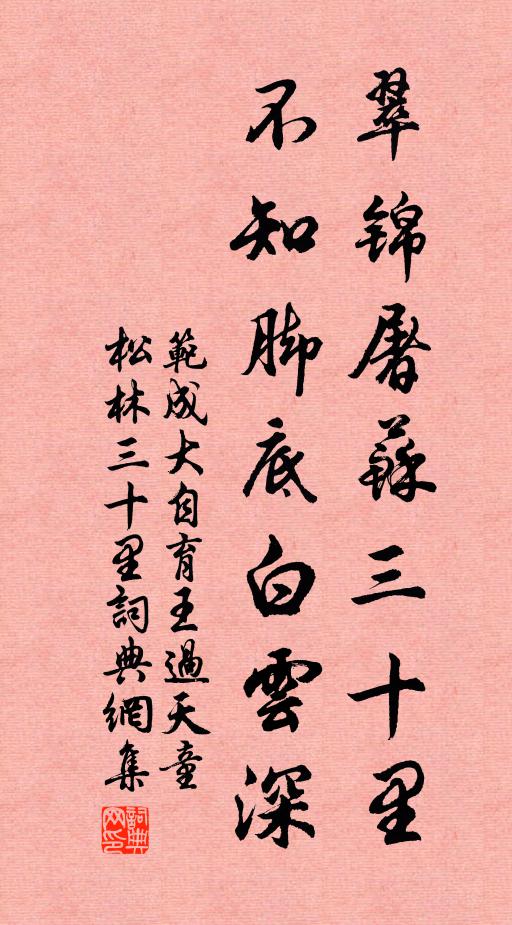 翠錦屠蘇三十里
不知脚底白雲深
範成大自育王過天童
松林三十里詞典網集
詞典
网印